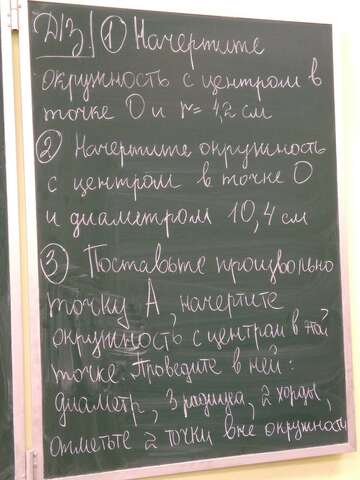 Д/З. ① Начертите
окружность с центром в
точке О и r = 4,2 см
② Начертите окружность
с центром в точке О
и диаметром 10,4 см
③ Поставьте произвольно
точку А, начертите
окружность с центром в этой
точке. Проведите в ней:
диаметр, 3 радиуса, 2 хорды,
отметьте 2 точки вне окружности